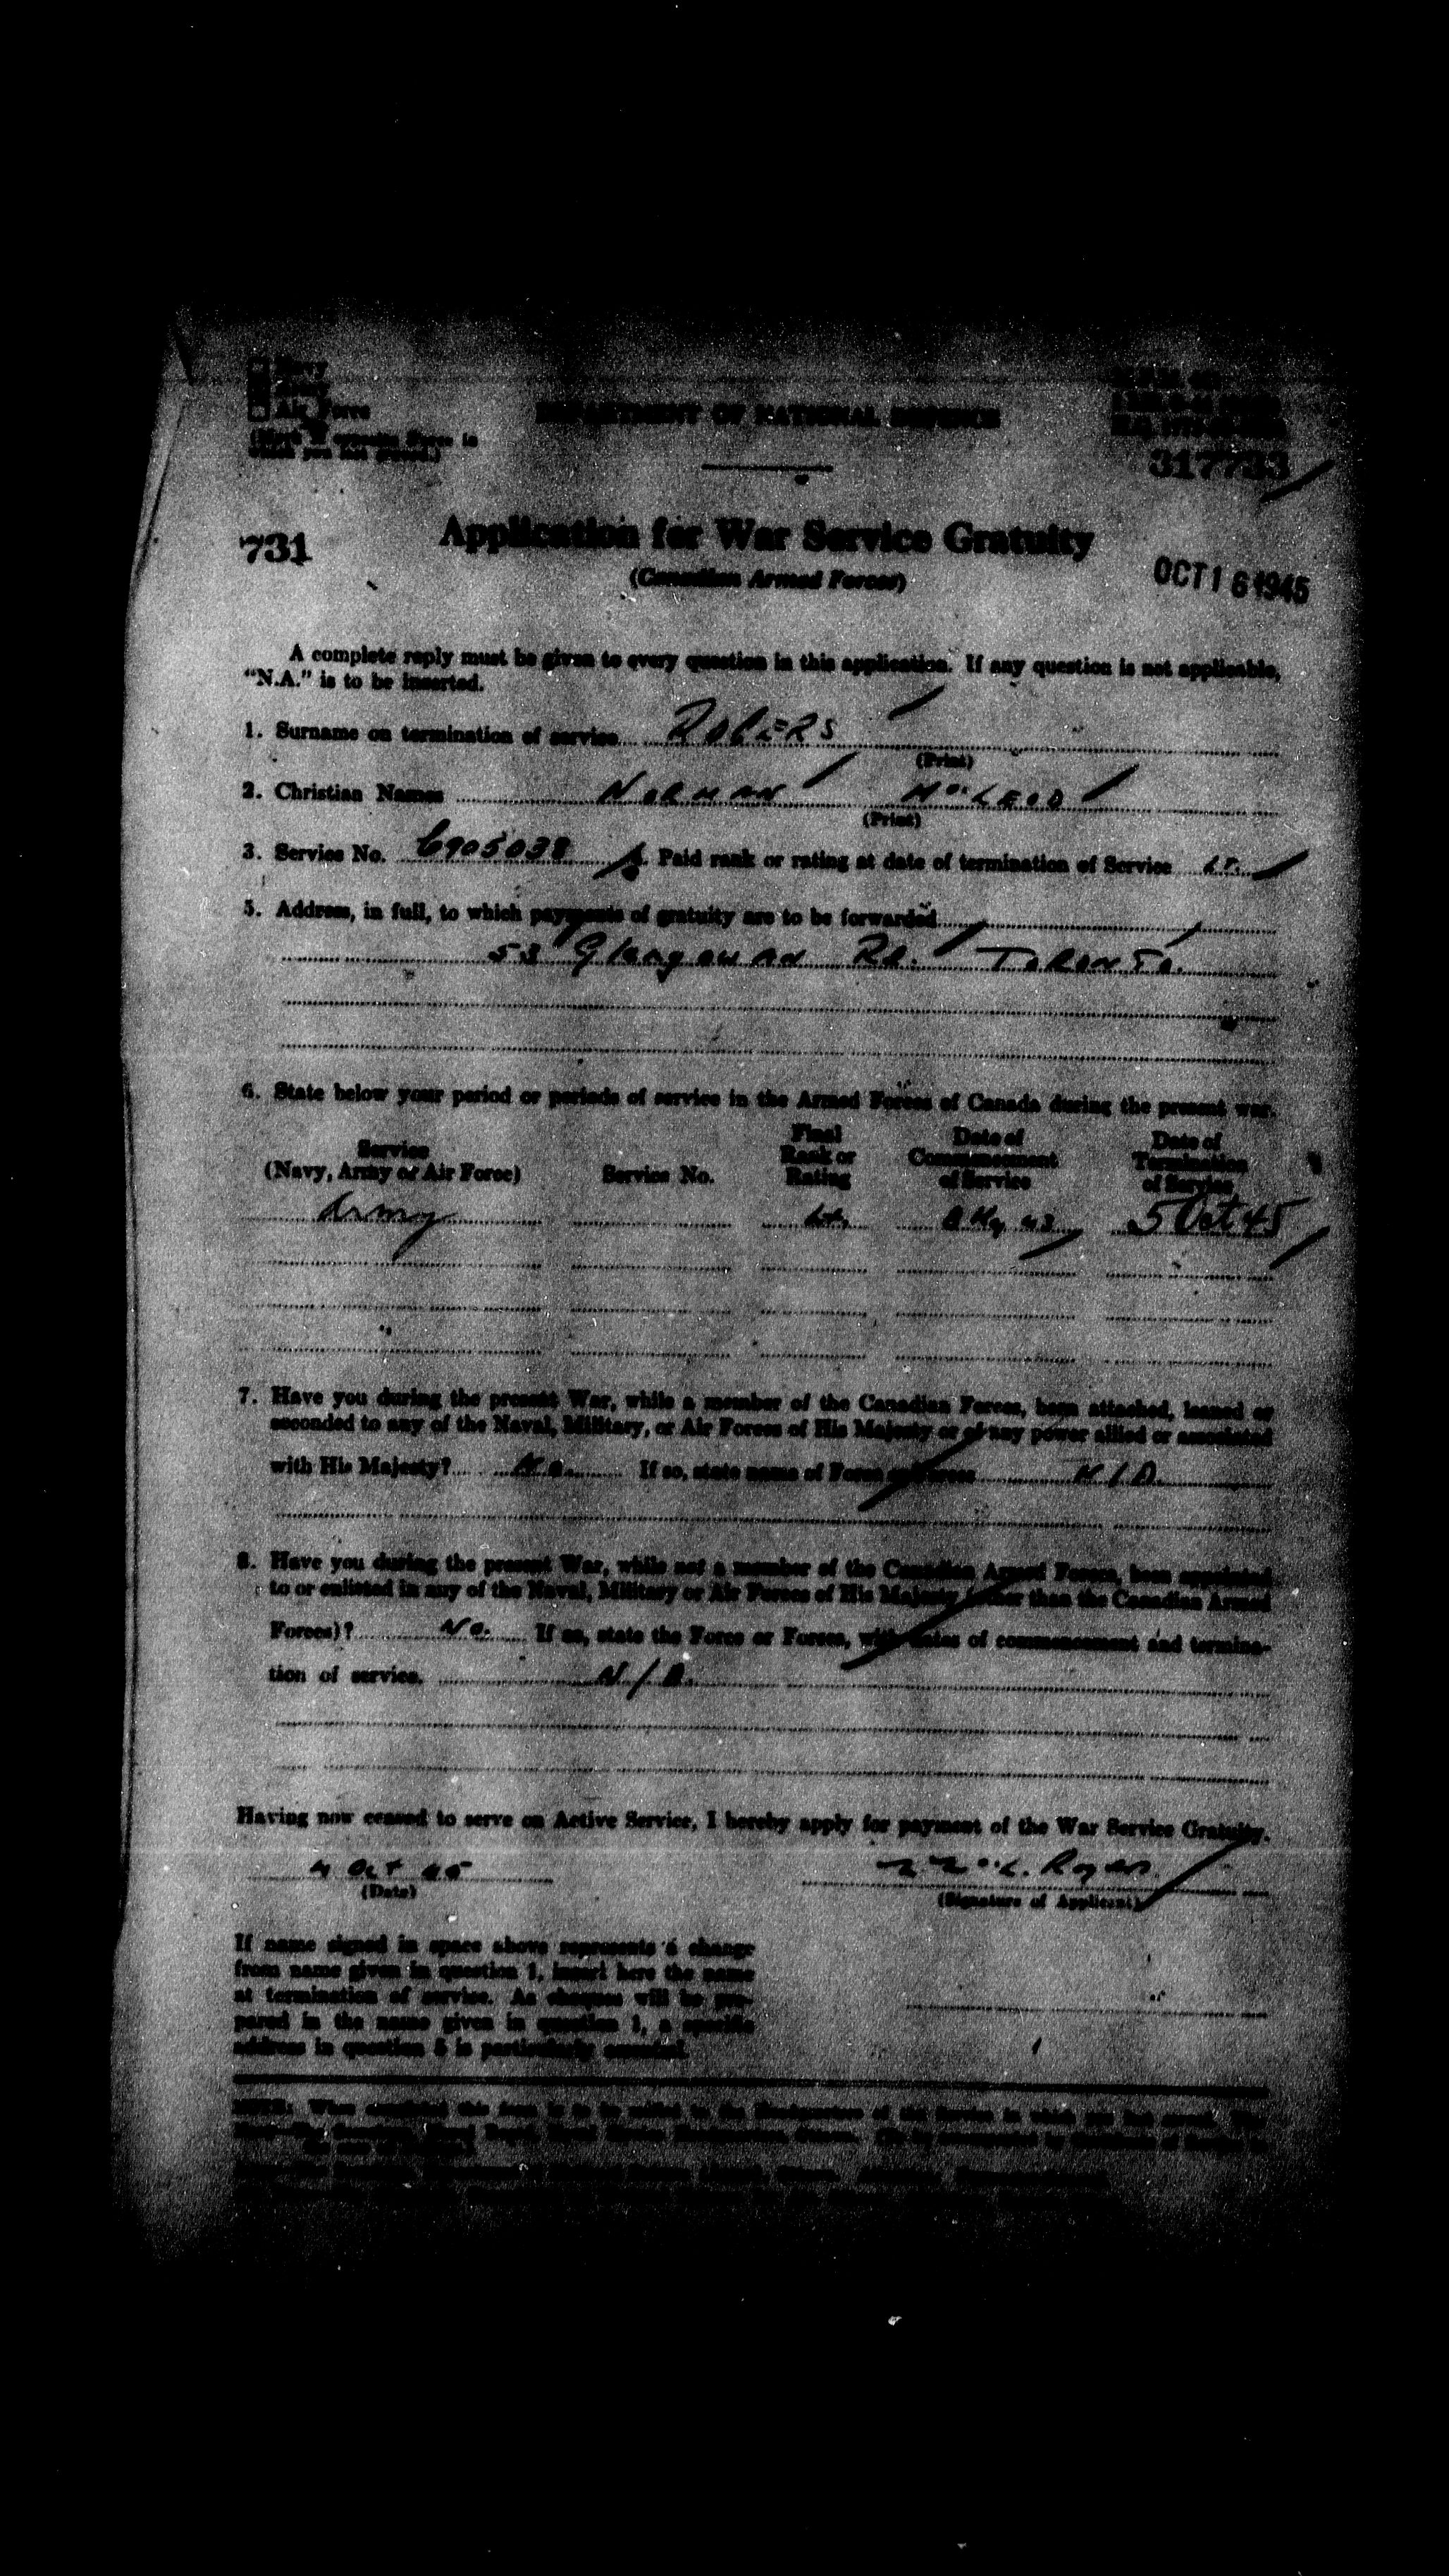 Navy
Air Force
(Mark X opposite Force in
which you last served.)
DEPARTMENT OF NATIONAL DEFENCE
317733
731
Application for War Service Gratuity
(Canadian Armed Forces)
OCT 16 1945
A complete reply must be given to every question in this application. If any question is not applicable,
"N.A." is to be inserted.
1. Surname on termination of service ROGERS
(Print)
2. Christian Names NORMAN McLEOD
(Print)
3. Service No. C905038 4. Paid rank or rating at date of termination of Service LT.
5. Address, in full, to which payments of gratuity are to be forwarded
53 Glengowan Rd. TORONTO.
6. State below your period or periods of service in the Armed Forces of Canada during the present war.
Service (Navy, Army or Air Force) Service No. Final Rank or Rating Date of Commencement of Service Date of Termination of Service
Army Lt. 43 5 Oct 45
7. Have you during the present War, while a member of the Canadian Forces, been attached, loaned or
seconded to any of the Naval, Military, or Air Forces of His Majesty or of any power allied or associated
with His Majesty? No. If so, state name of Force or Forces N/A.
8. Have you during the present War, while not a member of the Canadian Armed Forces, been appointed
to or enlisted in any of the Naval, Military or Air Forces of His Majesty (other than the Canadian Armed
Forces)? No. If so, state the Force or Forces, with dates of commencement and termina-
tion of service. N/A.
Having now ceased to serve on Active Service, I hereby apply for payment of the War Service Gratuity.
4 Oct 45 N McL. Rogers
(Date) (Signature of Applicant)
If name signed in space above represents a change
from name given in question 1, insert here the name
at termination of service. As cheques will be pre-
pared in the name given in question 1, a specific
address in question 5 is particularly essential.